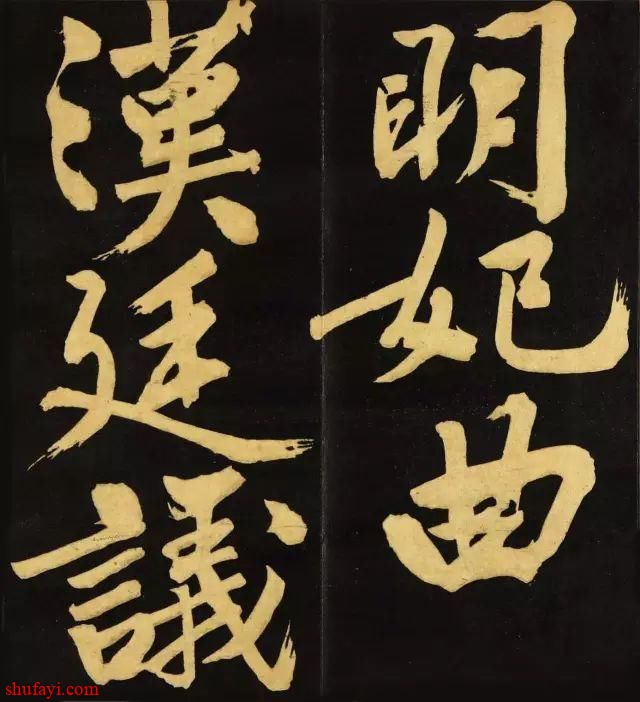 明妃曲
漢廷議
shufayi.com